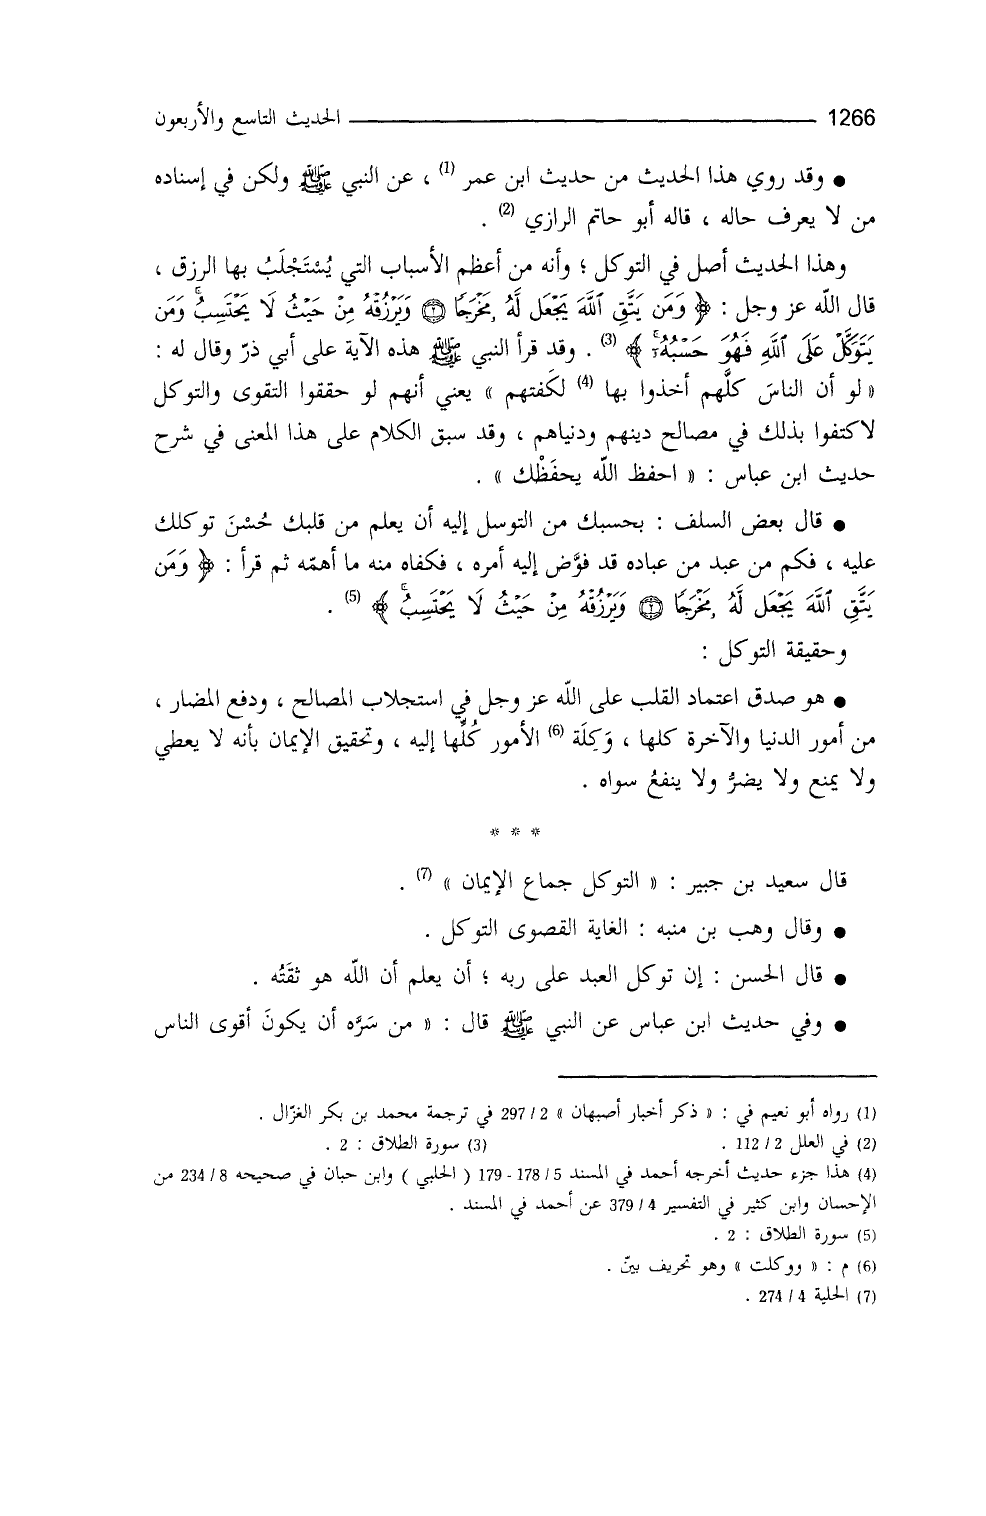 1266 الحديث التاسع والأربعون
● وقد روي هذا الحديث من حديث ابن عمر (1) ، عن النبي ﷺ ولكن في إسناده
من لا يعرف حاله ، قاله أبو حاتم الرازي (2) .
وهذا الحديث أصل في التوكل ؛ وأنه من أعظم الأسباب التي يُسْتَجْلَبُ بها الرزق ،
قال الله عز وجل : ﴿ وَمَن يَتَّقِ ٱللَّهَ يَجْعَل لَّهُۥ مَخْرَجًا ۝٢ وَيَرْزُقْهُ مِنْ حَيْثُ لَا يَحْتَسِبُ ۚ وَمَن
يَتَوَكَّلْ عَلَى ٱللَّهِ فَهُوَ حَسْبُهُۥٓ ۚ ﴾ (3) . وقد قرأ النبي ﷺ هذه الآية على أبي ذرّ وقال له :
« لو أن الناسَ كلَّهم أخذوا بها (4) لكَفتهم » يعني أنهم لو حققوا التقوى والتوكل
لاكتفوا بذلك في مصالح دينهم ودنياهم ، وقد سبق الكلام على هذا المعنى في شرح
حديث ابن عباس : « احفظ اللّه يحفَظْك » .
● قال بعض السلف : بحسبك من التوسل إليه أن يعلم من قلبك حُسْنَ توكلك
عليه ، فكم من عبد من عباده قد فوَّض إليه أمره ، فكفاه منه ما أهمّه ثم قرأ : ﴿ وَمَن
يَتَّقِ ٱللَّهَ يَجْعَل لَّهُۥ مَخْرَجًا ۝٢ وَيَرْزُقْهُ مِنْ حَيْثُ لَا يَحْتَسِبُ ۚ ﴾ (5) .
وحقيقة التوكل :
● هو صدق اعتماد القلب على اللّه عز وجل في استجلاب المصالح ، ودفع المضار ،
من أمور الدنيا والآخرة كلها ، وَكِلَة (6) الأمور كُلِّها إليه ، وتحقيق الإيمان بأنه لا يعطي
ولا يمنع ولا يضرُّ ولا ينفعُ سواه .
* * *
قال سعيد بن جبير : « التوكل جماع الإيمان » (7) .
● وقال وهب بن منبه : الغاية القصوى التوكل .
● قال الحسن : إن توكل العبد على ربه ؛ أن يعلم أن اللّه هو ثقَتُه .
● وفي حديث ابن عباس عن النبي ﷺ قال : « من سَرَّه أن يكونَ أقوى الناس
(1) رواه أبو نعيم في : « ذكر أخبار أصبهان » 2 / 297 في ترجمة محمد بن بكر الغزّال .
(2) في العلل 2 / 112 . (3) سورة الطلاق : 2 .
(4) هذا جزء حديث أخرجه أحمد في المسند 5 / 178 - 179 ( الحلبي ) وابن حبان في صحيحه 8 / 234 من
الإحسان وابن كثير في التفسير 4 / 379 عن أحمد في المسند .
(5) سورة الطلاق : 2 .
(6) م : « ووكلت » وهو تحريف بيّن .
(7) الحلية 4 / 274 .